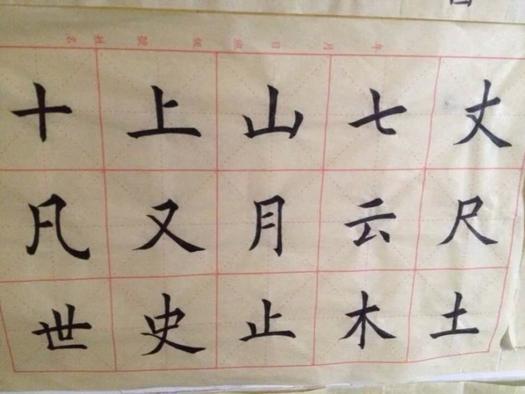 十上山七丈
凡又月云尺
世史止木土